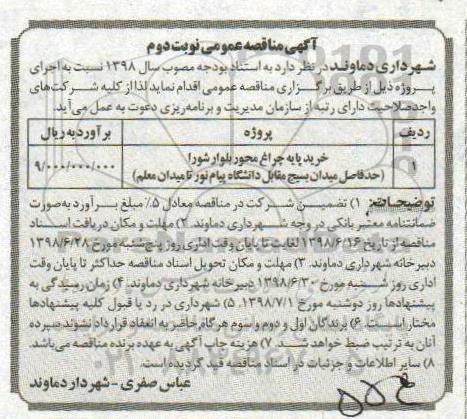 آگهی مناقصه عمومی نوبت دوم
شهرداری دماوند در نظر دارد به استناد بودجه مصوب سال ۱۳۹۸ نسبت به اجرای
پروژه ذیل از طریق برگزاری مناقصه عمومی اقدام نماید لذا از کلیه شرکت‌های
واجد صلاحیت دارای رتبه از سازمان مدیریت و برنامه‌ریزی دعوت به عمل می‌آید.
ردیف پروژه برآورد به ریال
۱ خرید پایه چراغ محور بلوار شورا ۹/۰۰۰/۰۰۰/۰۰۰
(حدفاصل میدان بسیج مقابل دانشگاه پیام نور تا میدان معلم)
توضیحات: ۱) تضمین شرکت در مناقصه معادل ۵٪ مبلغ برآورد به صورت
ضمانتنامه معتبر بانکی در وجه شهرداری دماوند. ۲) مهلت و مکان دریافت اسناد
مناقصه از تاریخ ۱۳۹۸/۶/۱۶ لغایت تا پایان وقت اداری روز پنج‌شنبه مورخ ۱۳۹۸/۶/۲۸
دبیرخانه شهرداری دماوند. ۳) مهلت و مکان تحویل اسناد مناقصه حداکثر تا پایان وقت
اداری روز شنبه مورخ ۱۳۹۸/۶/۳۰ دبیرخانه شهرداری دماوند. ۴) زمان رسیدگی به
پیشنهادها روز دوشنبه مورخ ۱۳۹۸/۷/۱. ۵) شهرداری در رد یا قبول کلیه پیشنهادها
مختار است. ۶) برندگان اول و دوم و سوم هرگاه حاضر به انعقاد قرارداد نشوند سپرده
آنان به ترتیب ضبط خواهد شد. ۷) هزینه چاپ آگهی به عهده برنده مناقصه می‌باشد.
۸) سایر اطلاعات و جزئیات در اسناد مناقصه قید گردیده است.
عباس صفری - شهردار دماوند